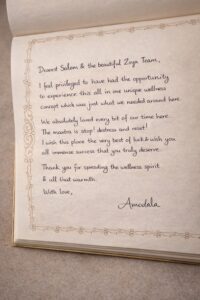 Dearest Salem & the beautiful Zoya Team,
I feel privileged to have had the opportunity
to experience this all in one unique wellness
concept which was just what we needed around here.
We absolutely loved every bit of our time here.
The mantra is stop! destress and reset!
I wish this place the very best of luck & wish you
all immense success that you truly deserve.
Thank you for spreading the wellness spirit
& all that warmth.
With love,